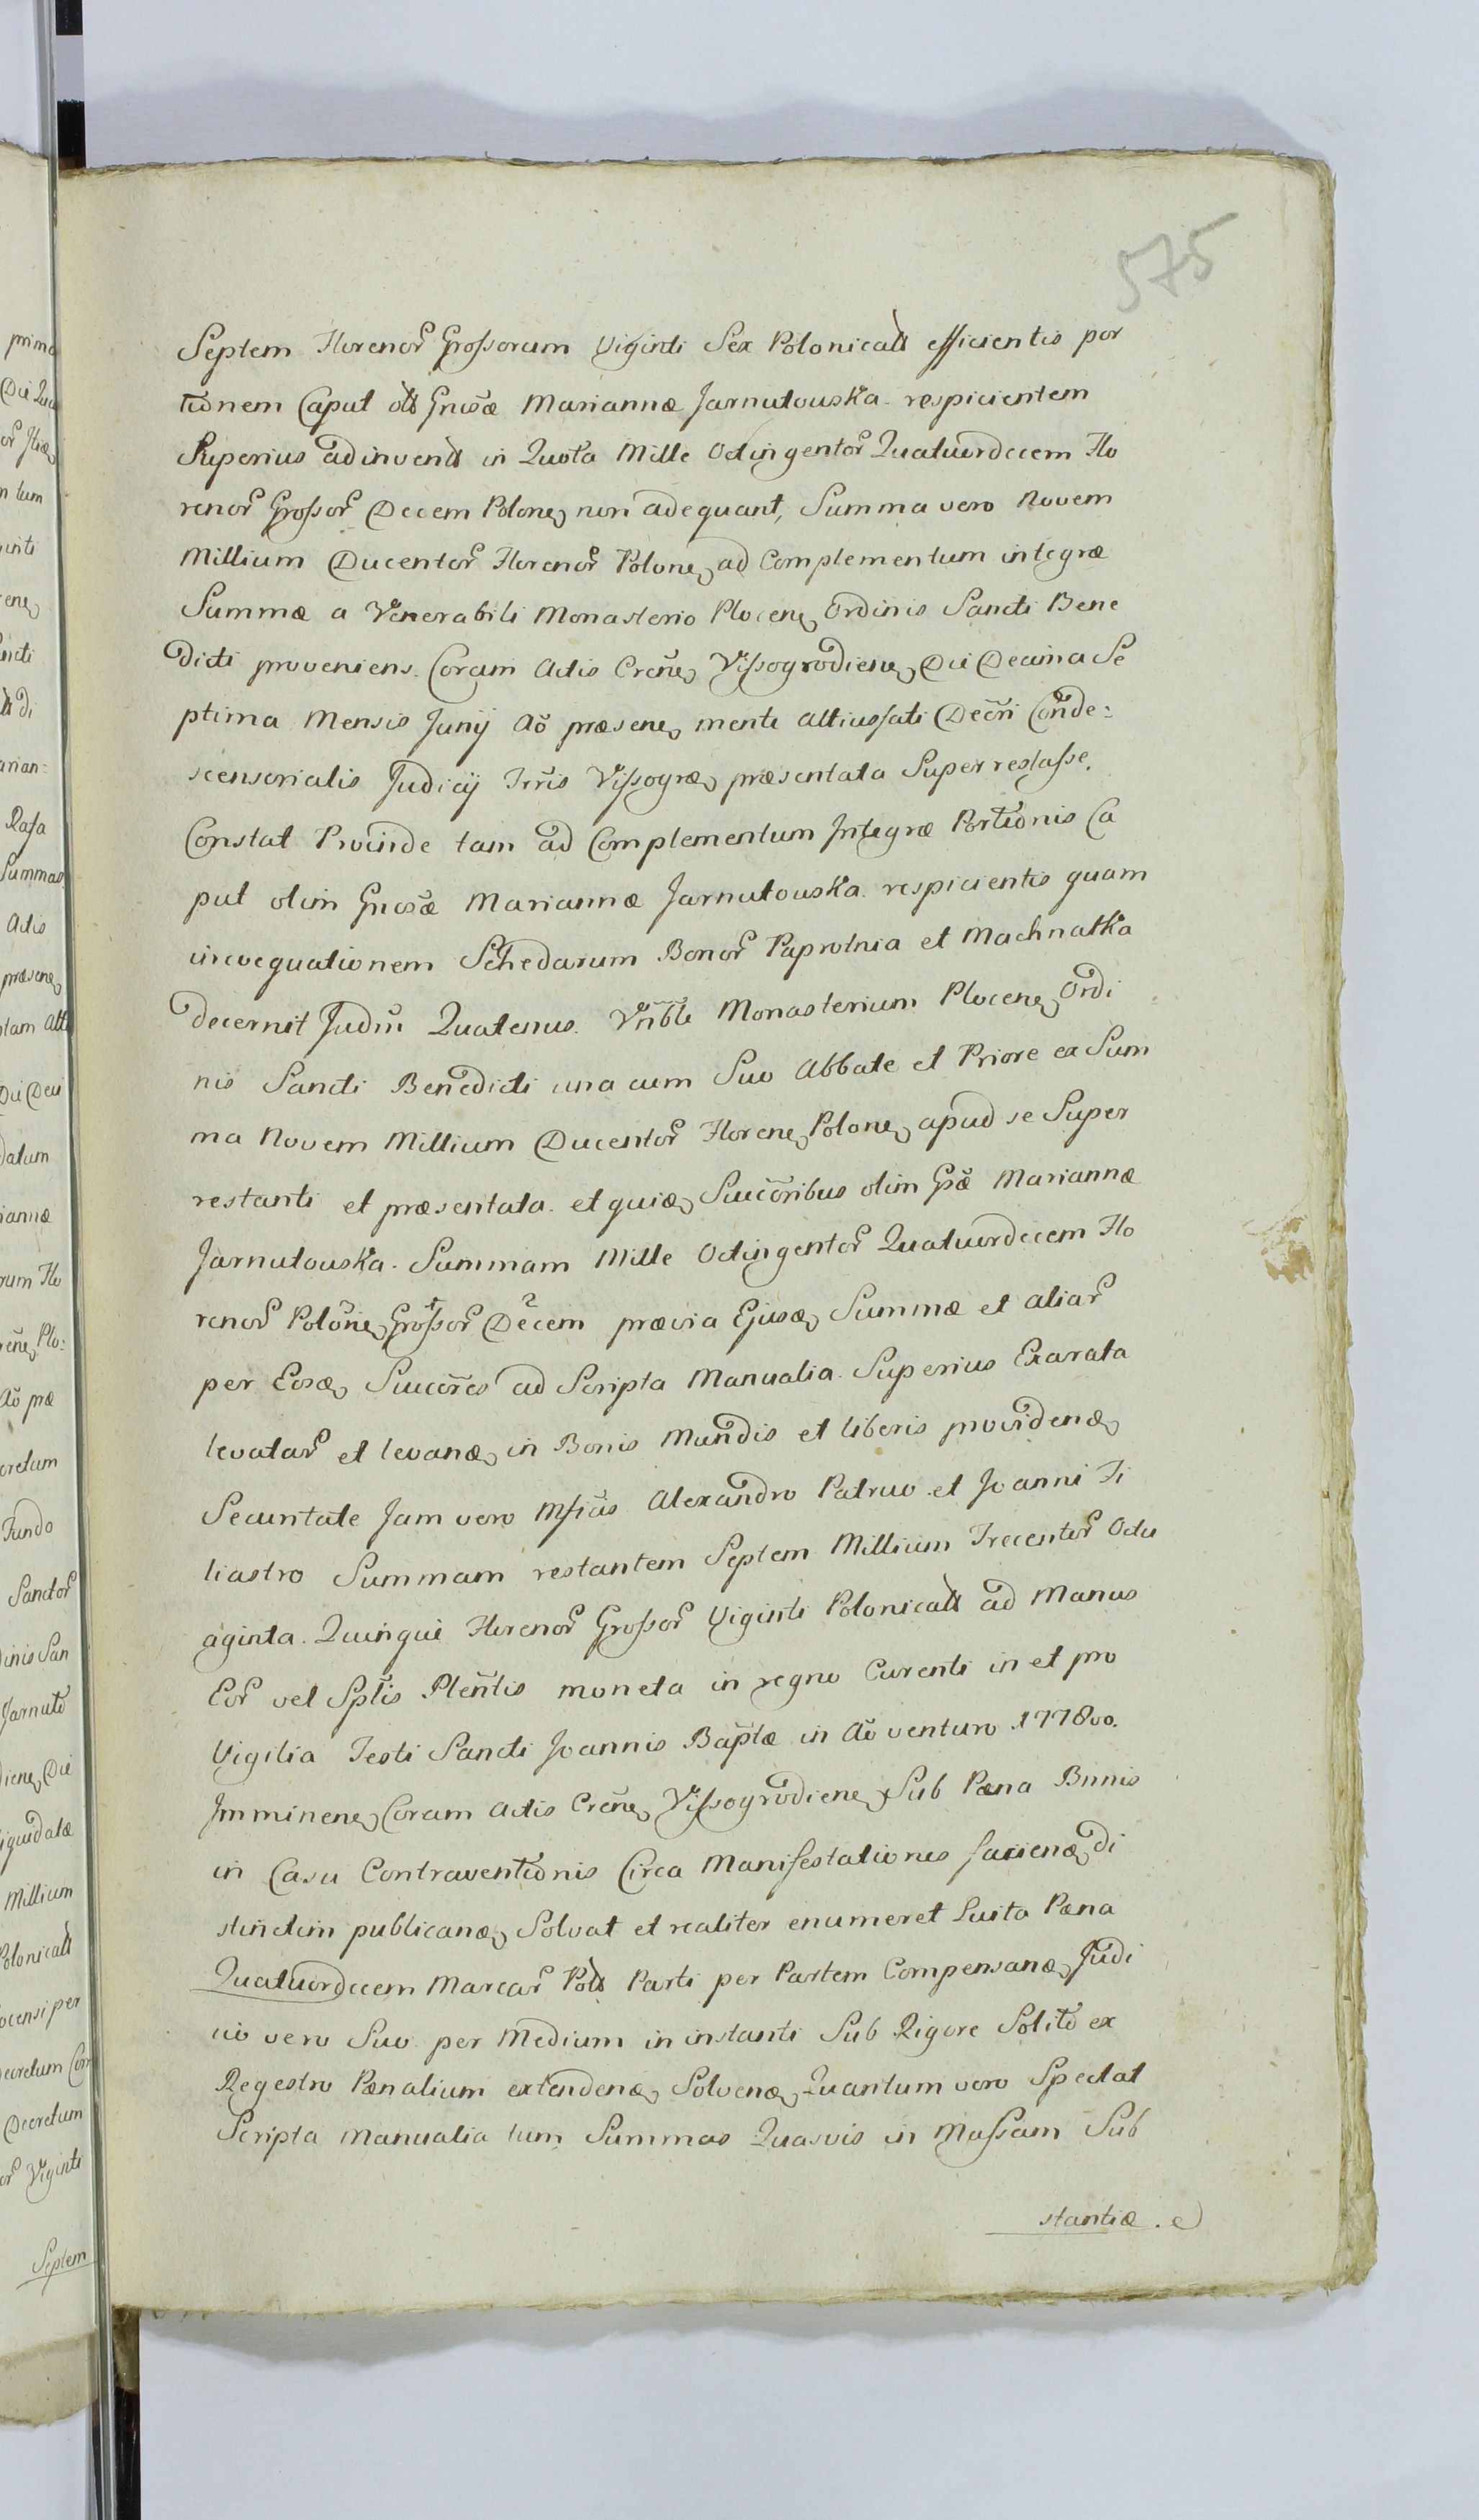 575
Septem Florenor Grossorum Viginti Sex Polonicall efficientis por
tionem Caput oll Gnosæ Mariannæ Jarnutouska respicientem
Superius adinvenll in Quota Mille Octingentor Quatuordecem Flo
renor Grossor Decem Polone, non adequant, Summa vero Novem
Millium Ducentor Florenor Polone, ad Complementum integræ
Summæ a Venerabili Monasterio Plocene, Ordinis Sancti Bene
dicti proveniens. Coram Actis Crēne, Vissogrodiene, Die Decima Se
ptima Mensis Junij Aō præsene, mente altiusfati Decr̃i Conde:
scensorialis Judicij Trr̃is Vissogræ, præsentata Superrestasse,
Constat Proinde tam ad Complementum Integræ Portionis Ca
put olim Gnosæ Mariannæ Jarnutouska respicientis quam
incoequationem Schedarum Bonor Paprotnia et Machnatka
decernit Judm̃ Quatenus Vñble Monasterium Plocene, Ordi
nis Sancti Benedicti una cum Suo Abbate et Priore ex Sum
ma Novem Millium Ducentor Florene, Polone, apud se Super
restanti et præsentata et quiæ, Succõribus olim Gsæ Mariannæ
Jarnutouska. Summam Mille Octingentor Quatuordecem Flo
renor Polõne, Grossor Decem prævia Ejusæ, Summæ et aliar
per Eosæ, Succẽres ad Scripta Manualia Superius Exarata
levatar et levanæ, in Bonis Mundis et liberis providenæ,
Securitate Jam vero Msicis Alexandro Patruo et Joanni Fi
liastro Summam restantem Septem Millium Trecentor Octu
aginta Quinque Florenor Grossor Viginti Polonicall ad Manus
Eor vel Sptis Pleñtis moneta in regno Curenti in et pro
Vigilia Festi Sancti Joannis Baptæ in Aō venturo 1778vo.
Imminene, Coram Actis Crẽne, Vissogrodiene, Sub Pæna Bnnis
in Casu Contraventionis Circa Manifestationes facienæ, di
stinctim publicanæ, Solvat et realiter enumeret Luita Pæna
Quatuordecem Marcar Poll Parti per Partem Compensanæ, Judi
cio vero Suo per Medium in instanti Sub Rigore Solito ex
Regestro Pænalium extendenæ, Solvenæ, Quantum vero Spectat
Scripta Manualia tum Summas Quasvis in Massam Sub
stantiæ.